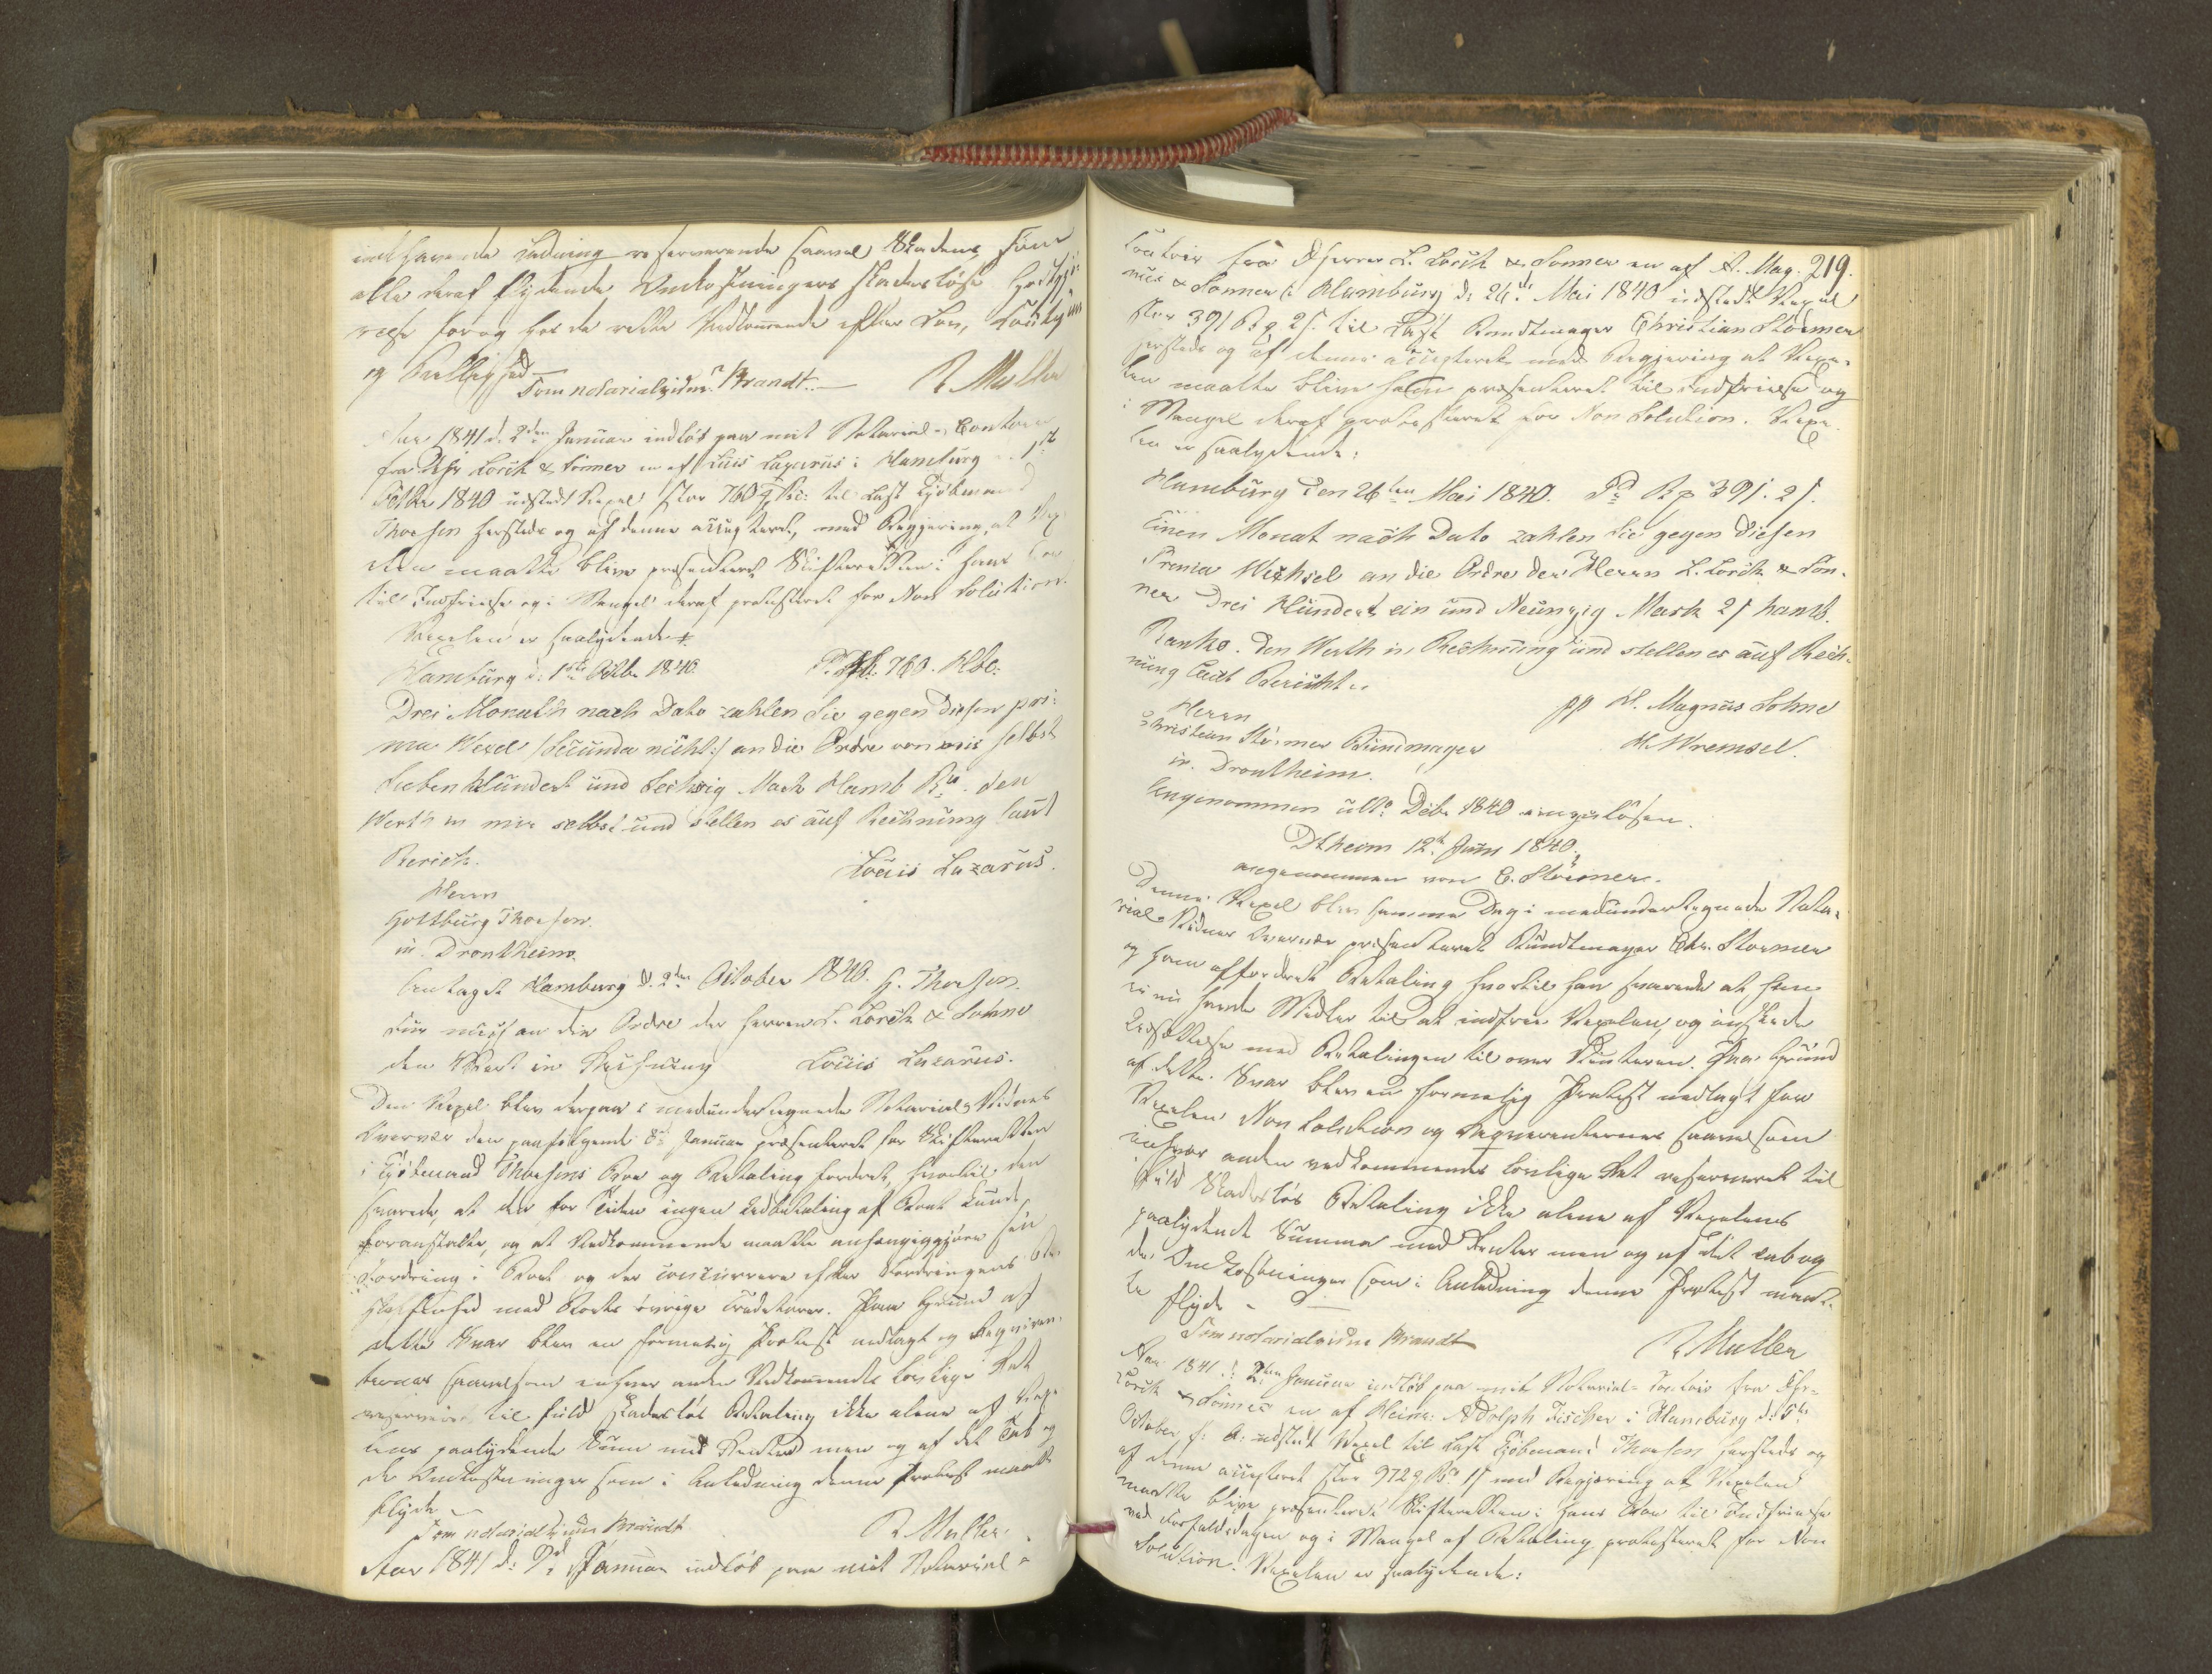 indhavende Ladning reserverende saavel Skadens som
alle deraf flydende Omkostningers skadesløse Godtgjø-
relse for og hos de rette Vedkommende efter Lov,
og Billighed
Som notarialvidne Brandt. R Muller
Aar 1841 d. 2den Januar indløb paa mit Notarial-Contoir
fra Dhr Lorck & Sønner en af Louis Lazarus i Hamburg d. 1ste
Octbr 1840 udstedt Vexel stor 760 til Last Kjøbmand
Thoesen hersteds og af denne accepteret, med Begjering, at Vex
elen maatte blive præsenteret Skifteretten i hans Boe
til Indfrielse og i Mangel deraf protesteret for Non Solution.
Vexelen er saalydende:
Hamburg d. 1ste Octbr 1840. 760. Hbc.
Drei Monath nach Dato zahlen Sie gegen diesen pri-
ma Wexel /:Secunda nicht:/ an die Ordre von mir selbst
Sieben Hundert und Sechszig Mark Hamb Bco. den
Werth in mir selbst und stellen es auf Rechnung laut
Bericht. Louis Lazarus.
Herrn
Goltburg Thoesen.
in Drontheim
Antaget Hamburg d. 2den October 1840. G. Thoesen.
Für mich an die Ordre der Herren L. Lorck & Sohne
den Wert in Rechnung Louis Lazarus.
Den Vexel blev derpaa i medundertegnede Notarial-Vidnes
Overvær den paafølgende 8de Januar præsenteret for Skifteretten
i Kjøbmand Thoesens Boe og Betaling fordret, hvortil den
svarede, at den for Tiden ingen Udbetaling af Boet kunde
foranstalte, og at Vedkommende maatte anhængiggjøre sin
Fordring i Boet og der concurrere efter Fordringens
med Boets øvrige Creditorer. Paa Grund af
dette Svar blev en formelig Protest nedlagt og Reqviren-
ternes saavelsom enhver anden Vedkommendes lovlige Ret
reserveret til fuld skadesløs Betaling ikke alene af Vexe
lens paalydende Sum med Renter men og af det Tab og
de Omkostninger som i Anledning denne Protest maatte
flyde
Som notarialvidne Brandt R Muller.
Aar 1841 d: 2d Januar indløb paa mit Notarial-
219.
Contoir fra Dherrer L. Lorck & Sønner en af A. Mag-
nus & Sønner i Hamburg d: 26d Mai 1840 udstedt Vexel
stor 391 2 s. til Last Bundtmager Christian Störmer
hersteds og af denne accepteret med Begjering at Vexe-
len maatte blive ham præsenteret til Indfrielse og
i Mangel deraf protesteret for Non Solution. Vexe-
len er saalydende:
Hamburg den 26ten Mai 1840. 391. 2 s.
Einen Monat nach Dato zahlen Sie gegen diesen
Prima Wechsel an die Ordre der Herrn L. Lorck & Sön-
ner Drei Hundert ein und Neunzig Mark 2 s hamb.
Banko. Den Werth in Rechnung und stellen es auf Rech-
nung laut Bericht..
pp H. Magnus Sohne
Herrn H. Wremsel.
Christian Störmer Bundmager
in Drontheim.
Angenommen ulto Debr 1840 einzulösen.
Dtheim 12te Juni 1840.
angenommen von C. Störmer.
Denne Vexel blev samme Dag i medundertegnede Nota-
rial-Vidnes Overvær præsenteret Bundtmager Chr. Störmer
og ham affordret Betaling hvortil han svarede at han
ei nu havde Midler til at indfrie Vexelen, og ønskede
Udsættelse med Betalingen til over Vinteren. Paa Grund
af dette Svar blev en formelig Protest nedlagt for
Vexelens Non Solution og Reqvirenternes saavelsom
enhver anden vedkommendes lovlige Ret reserveret til
fuld skadesløs Betaling ikke alene af Vexelens
paalydende Summa med Renter men og af det Tab og
de Omkostninger som i Anledning denne Protest maat-
te flyde -
Som notarialvidne Brandt R Muller
Aar 1841 d: 2den Januar indløb paa mit Notarial-Contoir fra Dhr-
Lorck & Sönner en af Heinr: Adolph Fischer i Hamburg d: 5te
October f: A: udstedt Vexel til Last Kjøbmand Thoesen hersteds og
af denne accepteret stor 972 Bco 1 s med Begjering at Vexelen
maatte blive præsenteret Skifteretten i hans Boe til Indfrielse
ved Forfaldsdagen og i Mangel af Betaling protesteret for Non
Solution. Vexelen er saalydende: